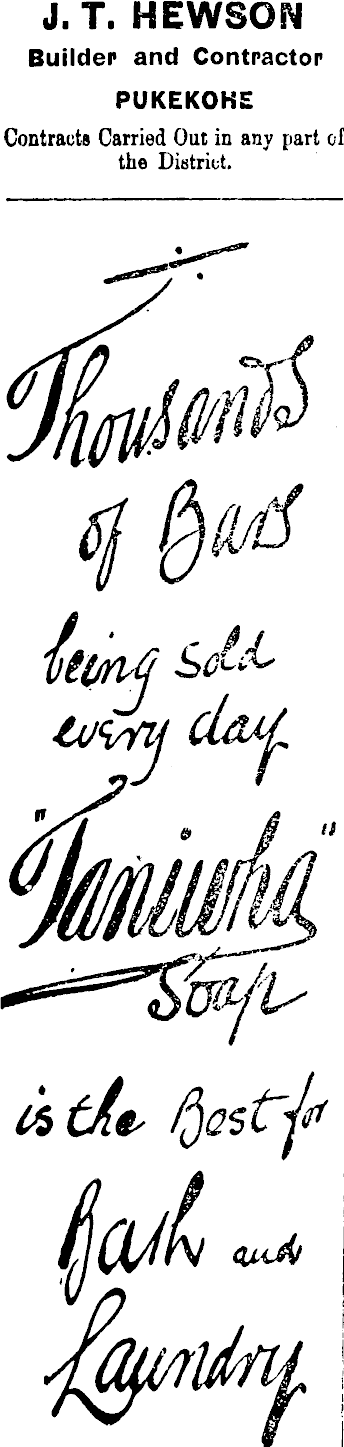 J. T. HEWSON
Builder and Contractor
PUKEKOHE
Contracts Carried Out in any part of
the District.
Thousands
of Bars
being sold
every day
"Taniwha"
Soap
is the Best for
Bath and
Laundry